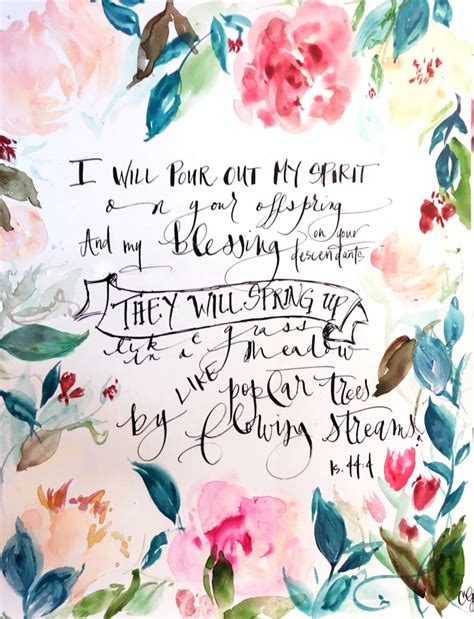 I WILL POUR OUT MY SPIRIT
on your offspring
And my Blessing on your descendants
THEY WILL SPRING UP
like grass
in a meadow
LIKE poplar trees
by flowing streams.
Is. 44:4